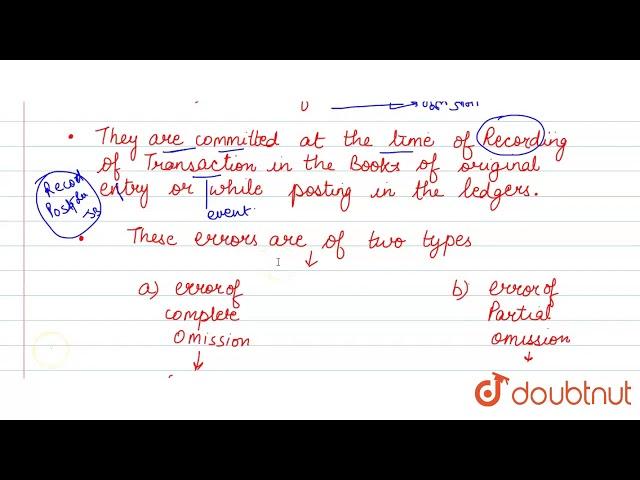 omission
• They are committed at the time of Recording
of Transaction in the Books of original
entry or while posting in the ledgers.
Record
event
• These errors are of two types
a) error of
complete
Omission
b) error of
Partial
omission
doubtnut